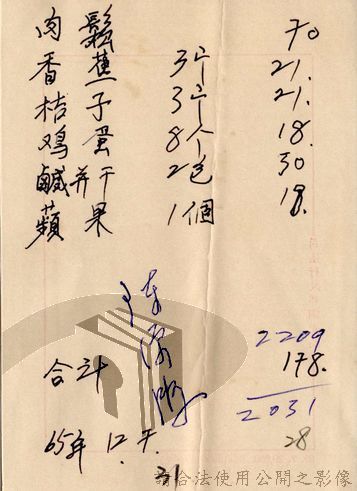 肉鬆 70
香蕉 3个 21.
桔子 3个 21.
鸡蛋 8个 18.
鹹并干 2包 30
蘋果 1個 18.
2209
合计 178.
2031
65年 12.
28
31
請合法使用公開之影像